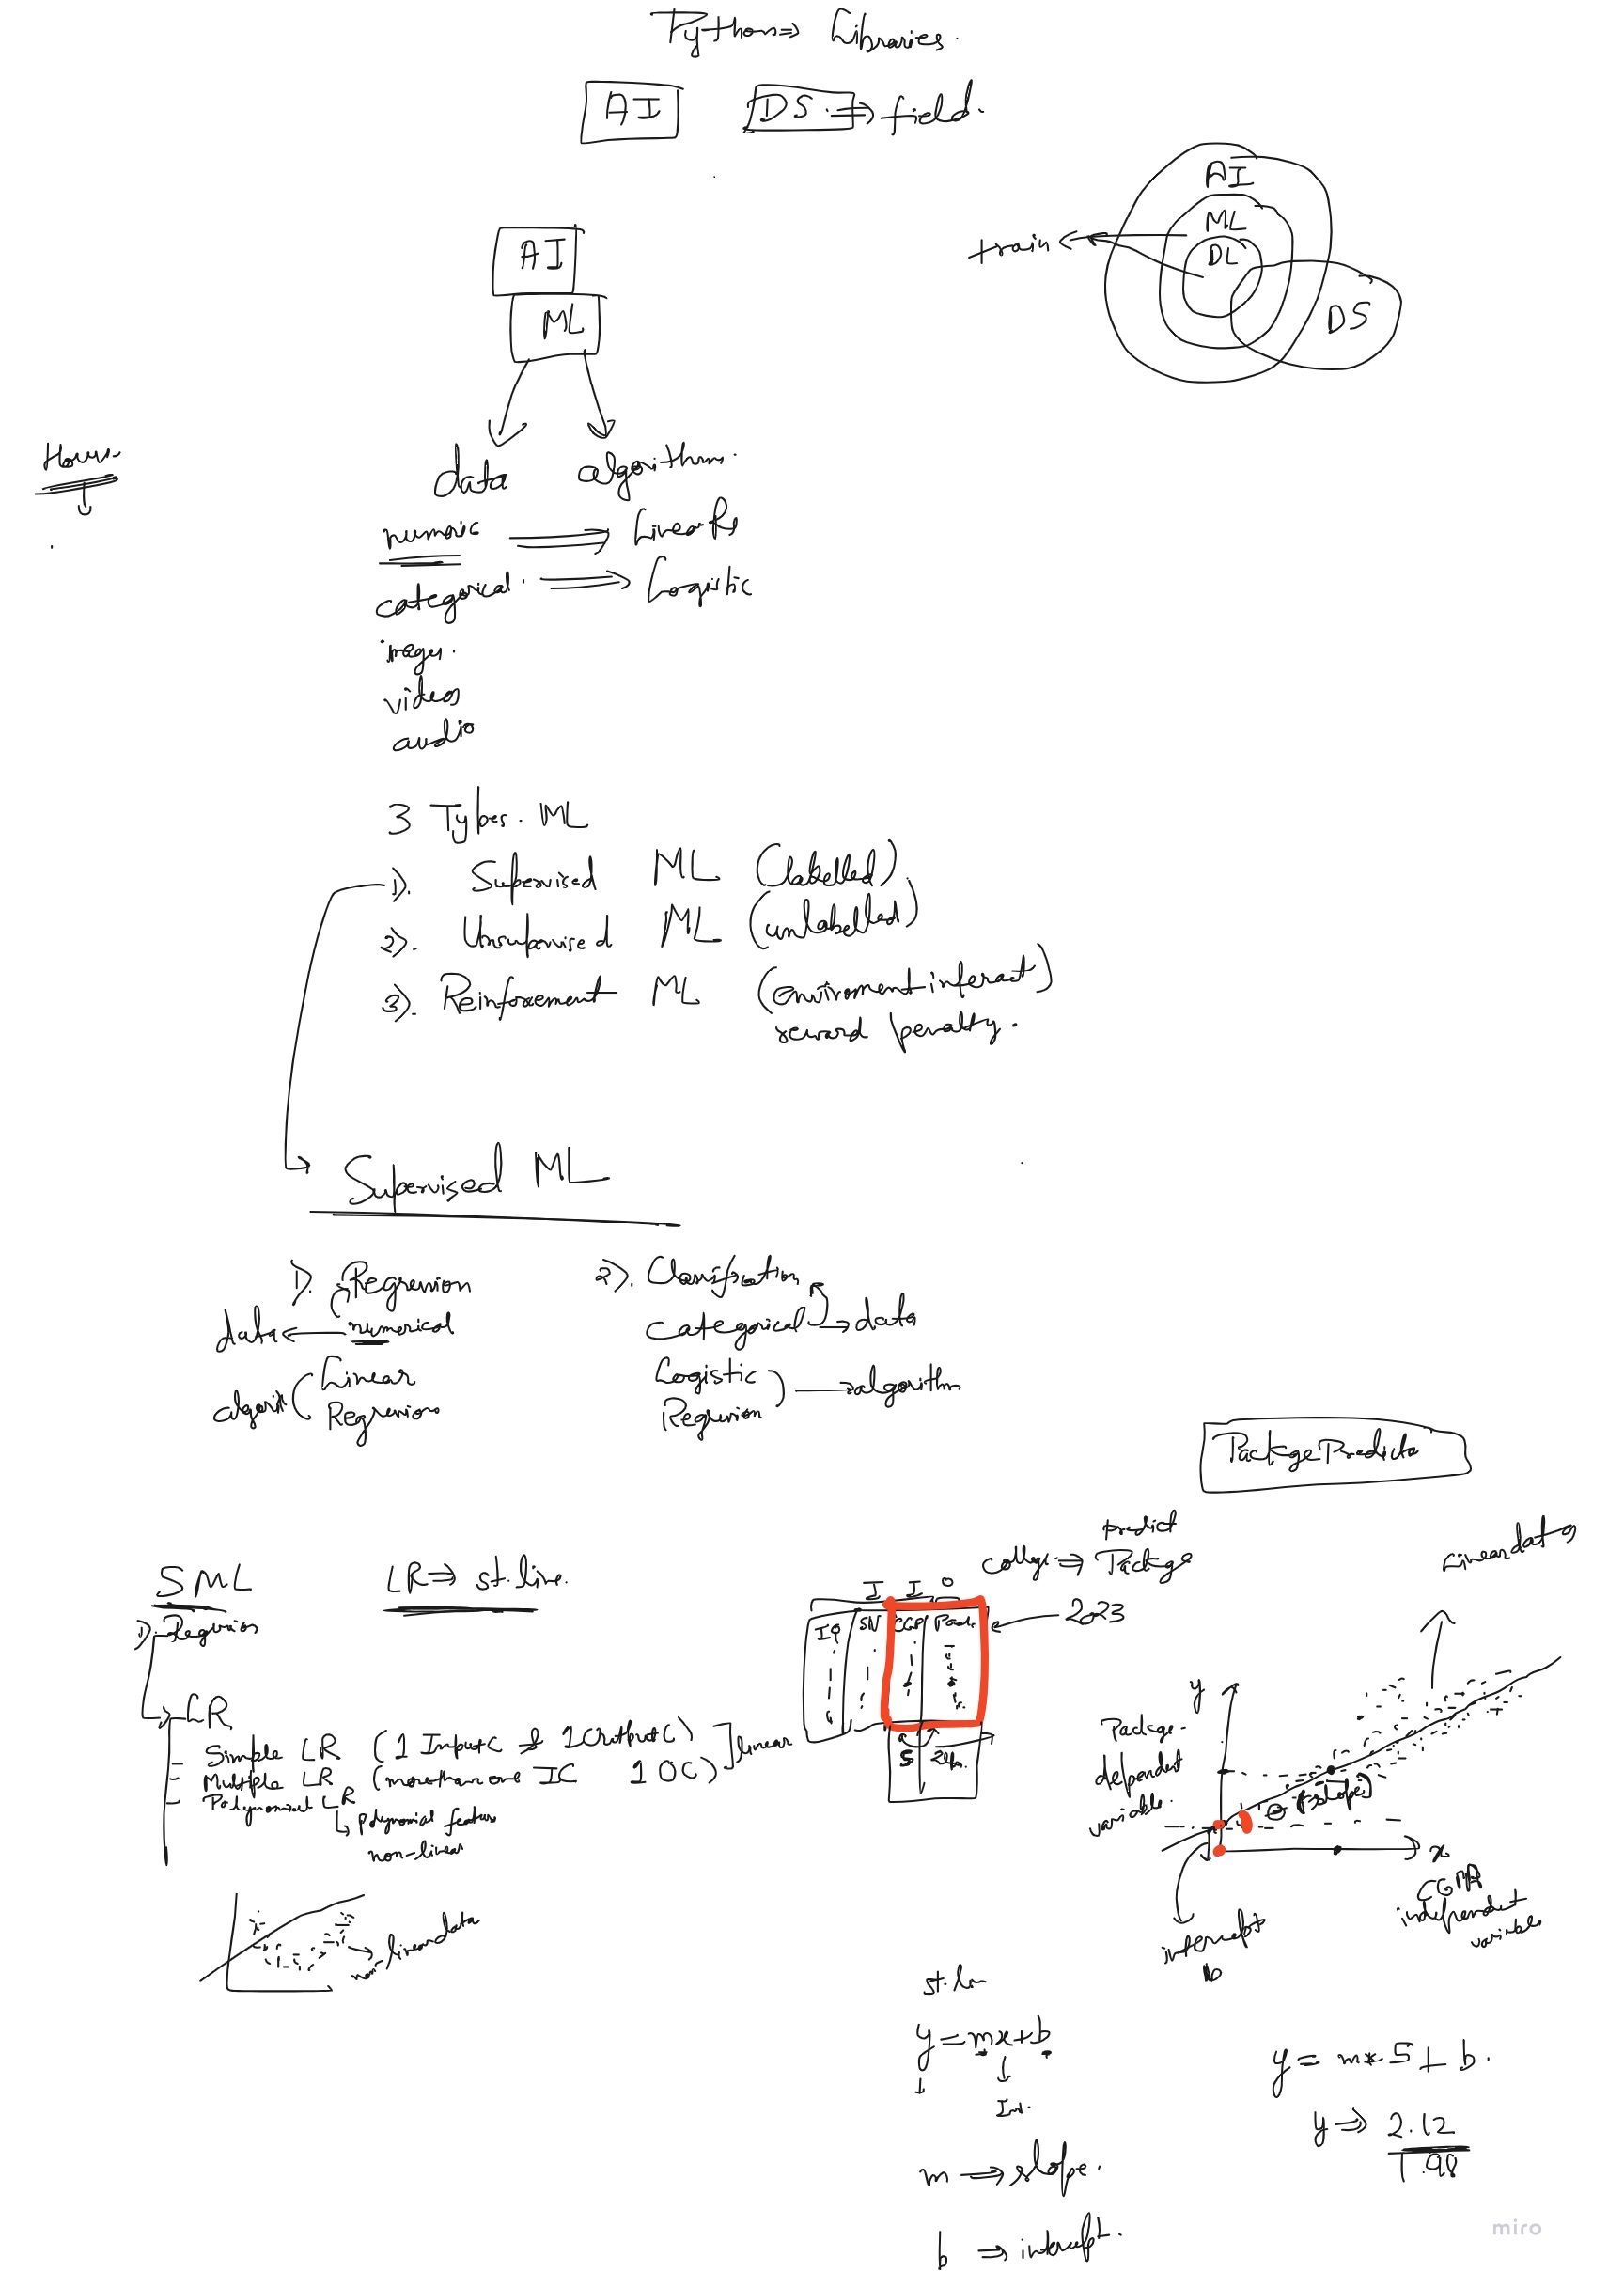 Python ⇒ Libraries.
AI DS. ⇒ field.
AI
ML
DL
DS
train
AI
ML
data algorithm.
numeric ⇒ Linear R
categorical. ⇒ Logistic
images.
videos
audio
3 Types. ML
1). Supervised ML (labelled).
2). Unsupervised ML (unlabelled)
3). Reinforcement ML (Enviroment interact)
reward penalty.
Supervised ML
1). Regression
data ← numerical
algorit ( Linear
Regression
2). Classification
categorical → data
Logistic
Regression ) → algorithm
Package Predicto
SML
1). Regression
LR ⇒ st. line.
LR
- Simple LR (1 Input C & 1 Output C)
- Multiple LR (more than one IC 1 OC)
] linear
- Polynomial LR
↳ Polynomial feature
non-linear
non-linear data
predict
college ⇒ Package
I I O
IQ SN CGP Pack.
2023
5 2 lpa.
Linear data
y
Package -
dependent
variable.
θ (slope)
x
CGPA
independent
variable
intercept
b
st. ln
y = mx + b
In.
m ⇒ slope.
b ⇒ intercept.
y = m * 5 + b.
y ⇒ 2.12
1.98
miro